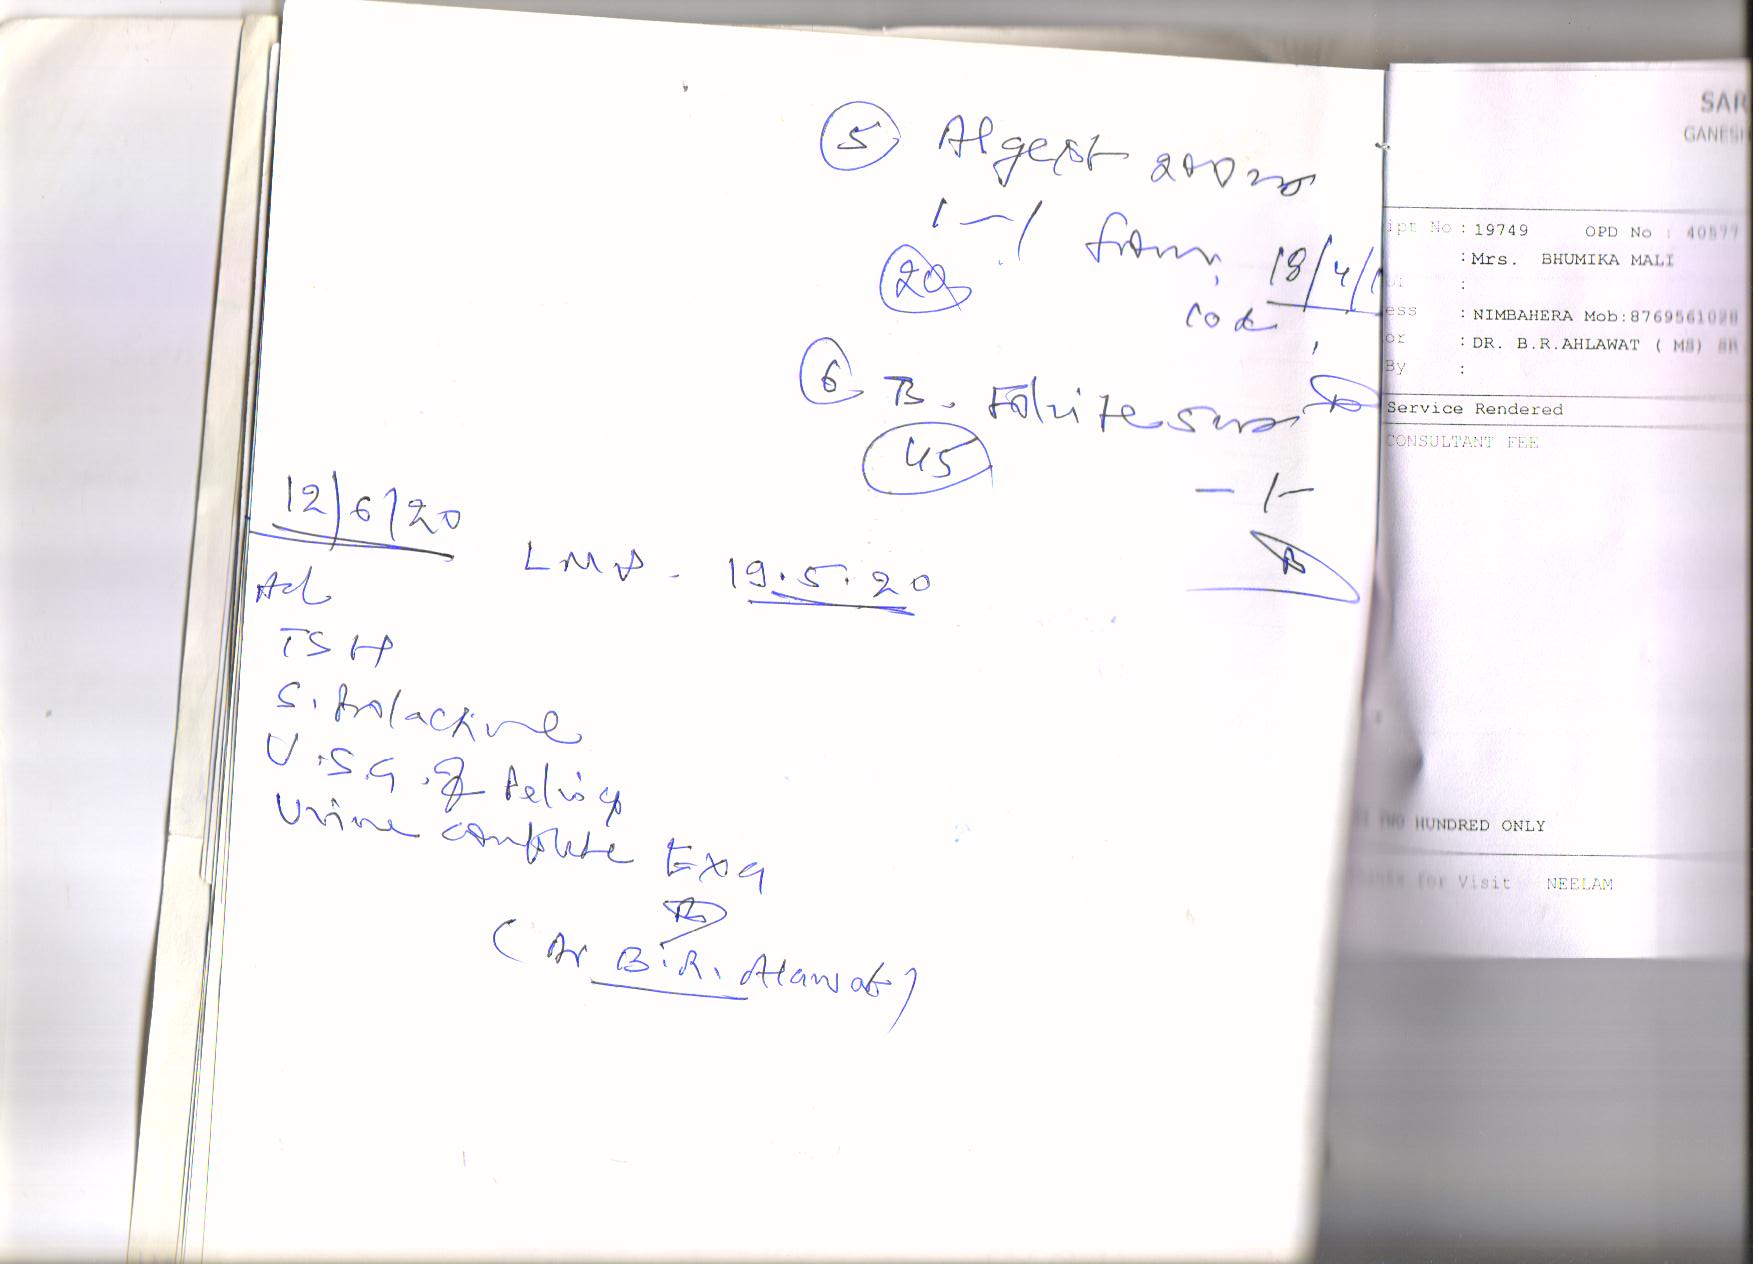 5 Algest 200
1-1 from 18/4/1
20
6 B. Folvite 5
45
- 1 -
12/6/20
LMP - 19.5.20
Ad
TSH
S. Prolactine
U.S.G. of Pelvis
Urine complete Exa
(Dr B.R. Alawat)
SAR
GANESH
ipt No : 19749 OPD No : 40577
: Mrs. BHUMIKA MALI
:
ess : NIMBAHERA Mob:8769561028
or : DR. B.R.AHLAWAT ( MS)
By :
Service Rendered
CONSULTANT FEE
TWO HUNDRED ONLY
for Visit NEELAM